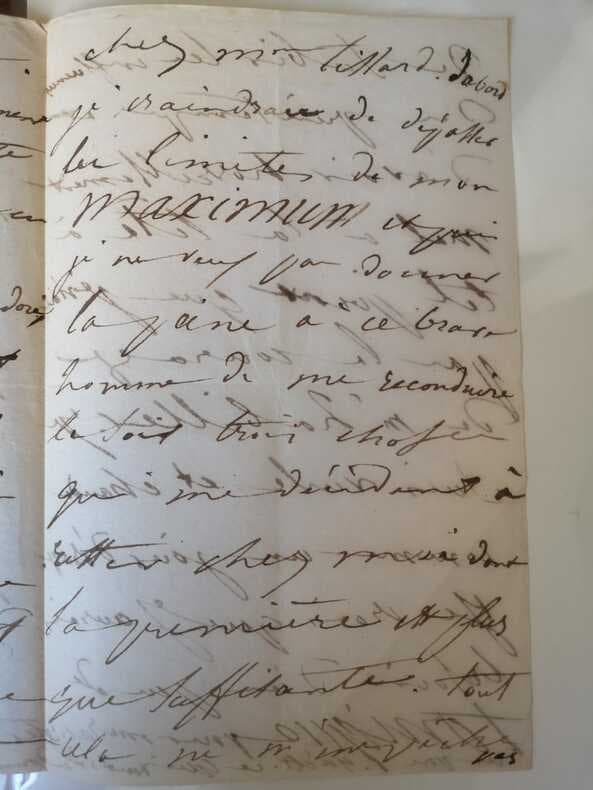 chez mme tillard. d'abord
je craindrais de dépasser
les limites de mon
MAXIMUM et puis
je ne veux pas donner
la peine a ce brave
homme de me reconduire
le soir trois choses
qui me décident à
rester chez moi dont
la première est plus
que suffisante. tout
cela ne m'empêche pas